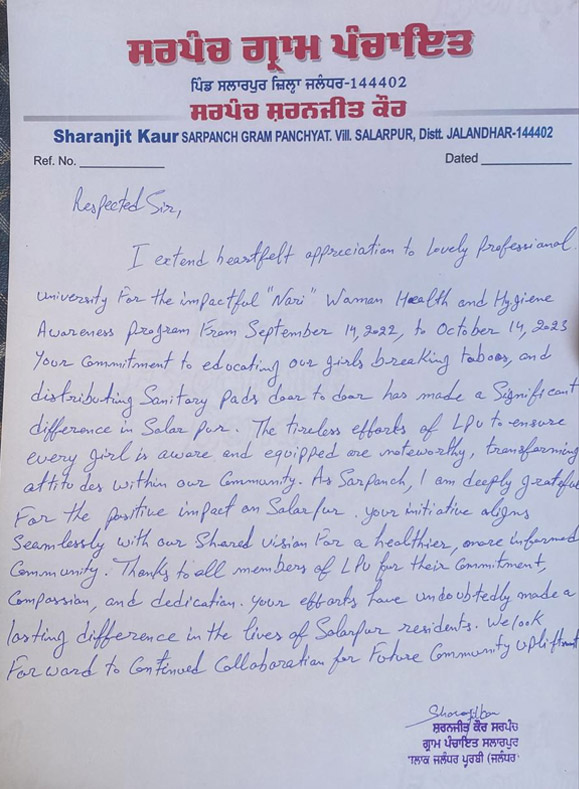 ਸਰਪੰਚ ਗ੍ਰਾਮ ਪੰਚਾਇਤ
ਪਿੰਡ ਸਲਾਰਪੁਰ ਜ਼ਿਲ੍ਹਾ ਜਲੰਧਰ-144402
ਸਰਪੰਚ ਸ਼ਰਨਜੀਤ ਕੌਰ
Sharanjit Kaur SARPANCH GRAM PANCHYAT. Vill. SALARPUR, Distt. JALANDHAR-144402
Ref. No. Dated
Respected Sir,
I extend heartfelt appreciation to Lovely Professional
University For the impactful "Nari" Waman Health and Hygiene
Awareness program From September 14, 2022, to October 14, 2023
Your Commitment to educating our girls breaking taboos, and
distributing Sanitary Pads door to door has made a Significant
difference in Salar pur. The tireless efforts of LPU to ensure
every girl is aware and equipped are noteworthy, transforming
attitudes within our Community. As Sarpanch, I am deeply grateful
For the positive impact on Salarpur. your initiative aligns
Seamlessly with our Shared vision For a healthier, more informed
Community. Thanks to all members of LPU for their Commitment,
Compassion, and dedication. your efforts have undoubtedly made a
lasting difference in the lives of Salarpur residents. We look
Forward to Continued Collaboration for Future Community
ਸ਼ਰਨਜੀਤ ਕੌਰ ਸਰਪੰਚ
ਗ੍ਰਾਮ ਪੰਚਾਇਤ ਸਲਾਰਪੁਰ
ਜਲੰਧਰ ਪੂਰਬੀ (ਜਲੰਧਰ